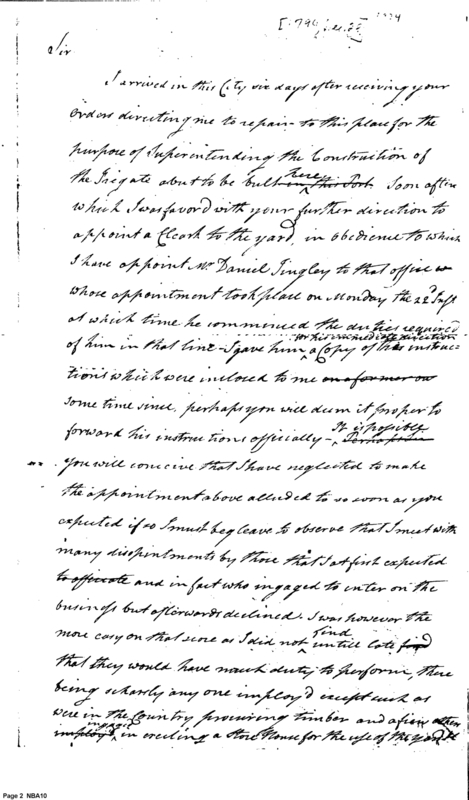 [1794, Dec. 25]
Sir
I arrived in this City six days after receiving your
orders directing me to repair to this place for the
purpose of Superintending the Construction of
the Frigate about to be built in this Port here Soon after
which I was favord with your further direction to
appoint a Cleark to the yard, in obedience to which
I have appoint Mr Daniel Tingley to that office
whose appointment took place on Monday the 22d Inst
at which time he commenced the duties required
of him in that line - I gave him for his immediate direction a Copy of his instruc-
tions which were inclosed to me on a former
some time since, perhaps you will deem it proper to
forward his instructions officially - It is possible
you will conceive that I have neglected to make
the appointment above alluded to so soon as you
expected if so I must beg leave to observe that I meet with
many disopintments by those that I at first expected
to officiate and in fact who ingaged to enter on the
business but afterwards declined. I was however the
more easy on that score as I did not find untill late find
that they would have much duty to perform, there
being scharsly any one imploy'd except such as
were in the Country procuring timber and a few others
imploy'd ingaged in erecting a Store House for the use of the Yard &
Page 2 NBA10